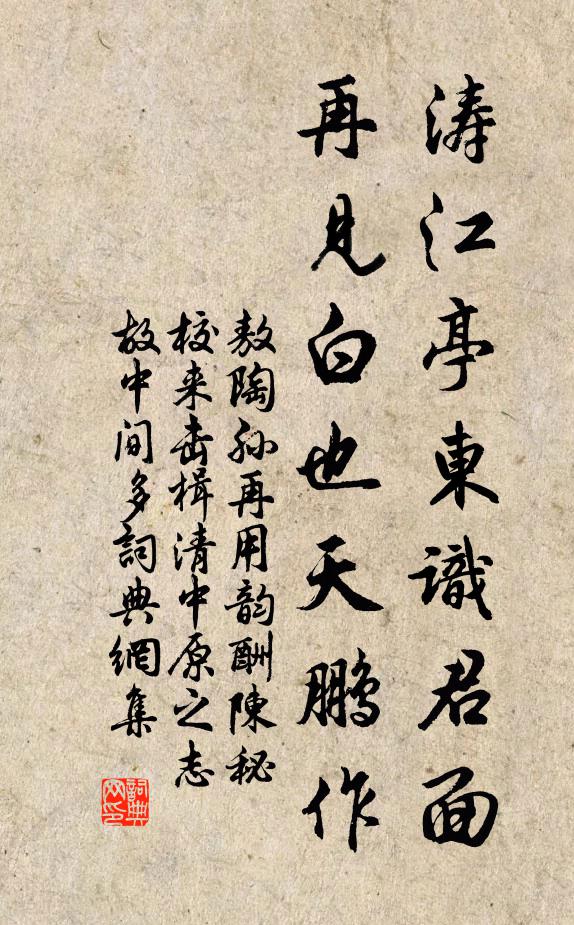 涛江亭東識君面
再見白也天鵬作
敖陶孙再用韵酬陳秘
校来击楫清中原之志
故中间多詞典網集
詞典
网印